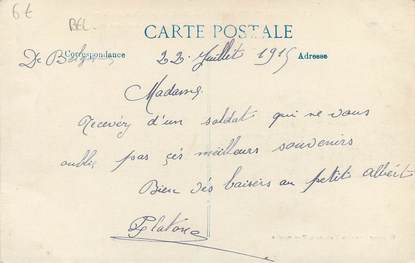 6€
BEL.
CARTE POSTALE
Correspondance
Adresse
De 22 Juillet 1915
Madame,
Recevéz d'un soldat qui ne vous
oublis pas çés meilleurs souvenirs
Bien dés baisérs au petit Albért
Platon